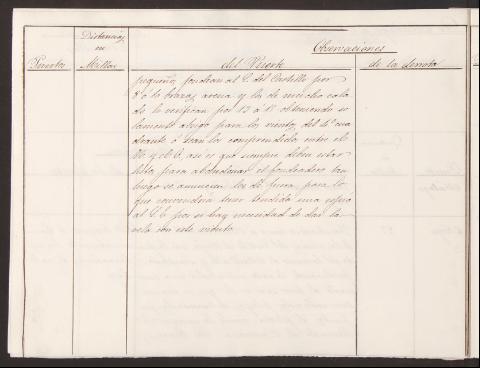 Distancias
en
Puertos Millas
Observaciones
del Puerto de la derrota
pequeños, fondean al S. del Castillo por
8 ó 10 brazas arena y los de mucho cala
do lo verifican por 13 á 15 obteniendo so
lamente abrigo para los vientos del 4º cua
drante ó sean los comprendidos entre el
N. y el O, así es que siempre deben estar
listos para abandonar el fondeadero tan
luego se anuncien los de fuera, para lo
que convendría tener tendida una espía
al por si hay necesidad de dar la
vela con este viento.